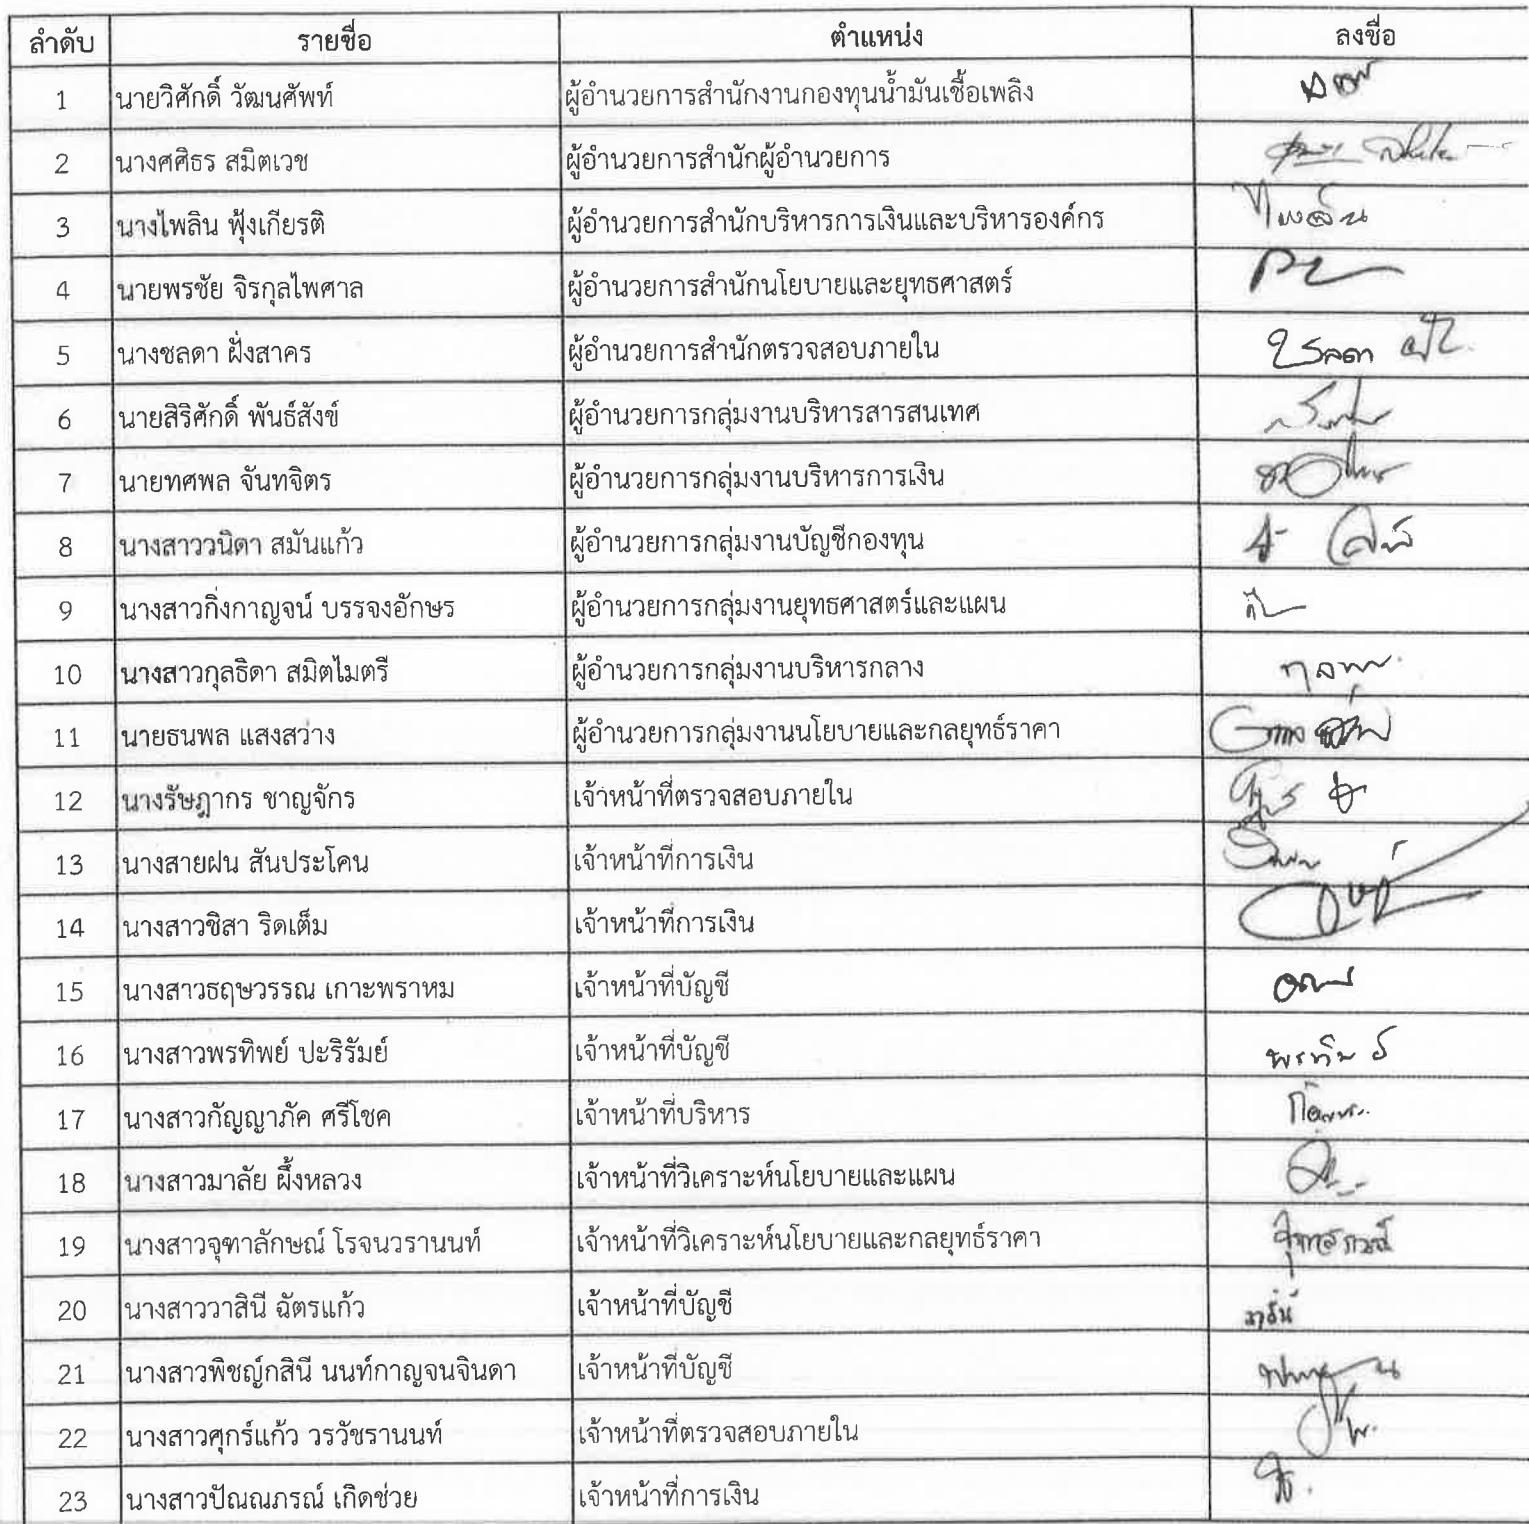 ลำดับ รายชื่อ ตำแหน่ง ลงชื่อ
1 นายวิศักดิ์ วัฒนศัพท์ ผู้อำนวยการสำนักงานกองทุนน้ำมันเชื้อเพลิง
2 นางศศิธร สมิตเวช ผู้อำนวยการสำนักผู้อำนวยการ
3 นางไพลิน ฟุ้งเกียรติ ผู้อำนวยการสำนักบริหารการเงินและบริหารองค์กร ไพลิน
4 นายพรชัย จิรกุลไพศาล ผู้อำนวยการสำนักนโยบายและยุทธศาสตร์
5 นางชลดา ฝั่งสาคร ผู้อำนวยการสำนักตรวจสอบภายใน
6 นายสิริศักดิ์ พันธ์สังข์ ผู้อำนวยการกลุ่มงานบริหารสารสนเทศ
7 นายทศพล จันทจิตร ผู้อำนวยการกลุ่มงานบริหารการเงิน
8 นางสาววนิดา สมันแก้ว ผู้อำนวยการกลุ่มงานบัญชีกองทุน
9 นางสาวกิ่งกาญจน์ บรรจงอักษร ผู้อำนวยการกลุ่มงานยุทธศาสตร์และแผน
10 นางสาวกุลธิดา สมิตไมตรี ผู้อำนวยการกลุ่มงานบริหารกลาง
11 นายธนพล แสงสว่าง ผู้อำนวยการกลุ่มงานนโยบายและกลยุทธ์ราคา
12 นางรัษฎากร ชาญจักร เจ้าหน้าที่ตรวจสอบภายใน
13 นางสายฝน สันประโคน เจ้าหน้าที่การเงิน
14 นางสาวชิสา ริดเต็ม เจ้าหน้าที่การเงิน
15 นางสาวธฤษวรรณ เกาะพราหม เจ้าหน้าที่บัญชี
16 นางสาวพรทิพย์ ปะริรัมย์ เจ้าหน้าที่บัญชี
17 นางสาวกัญญาภัค ศรีโชค เจ้าหน้าที่บริหาร
18 นางสาวมาลัย ผึ้งหลวง เจ้าหน้าที่วิเคราะห์นโยบายและแผน
19 นางสาวจุฑาลักษณ์ โรจนวรานนท์ เจ้าหน้าที่วิเคราะห์นโยบายและกลยุทธ์ราคา จุฑาลักษณ์
20 นางสาววาสินี ฉัตรแก้ว เจ้าหน้าที่บัญชี
21 นางสาวพิชญ์กสินี นนท์กาญจนจินดา เจ้าหน้าที่บัญชี
22 นางสาวศุกร์แก้ว วรวัชรานนท์ เจ้าหน้าที่ตรวจสอบภายใน
23 นางสาวปัณณภรณ์ เกิดช่วย เจ้าหน้าที่การเงิน